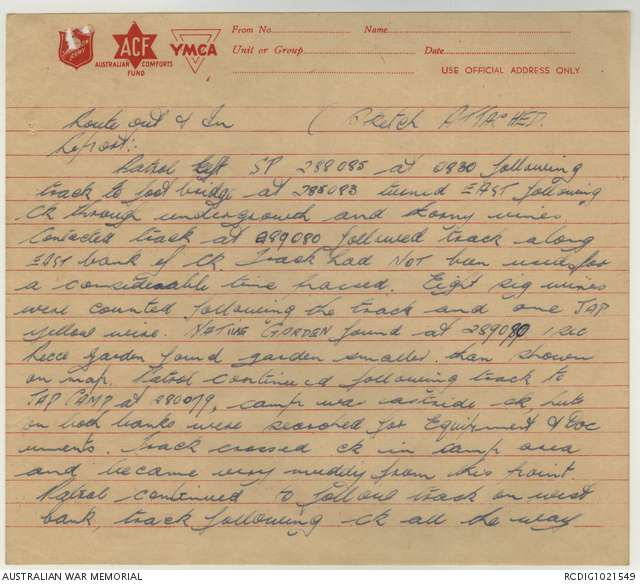 From No. Name
ACF YMCA Unit or Group Date
AUSTRALIAN COMFORTS FUND USE OFFICIAL ADDRESS ONLY
Route out & In ( Sketch ATTACHED.
Report:-
Patrol left SP 288085 at 0830 following
track to foot bridge at 285083 turned EAST following
ck through undergrowth and thorny vines.
Contacted track at 289080 followed track along
EAST bank of ck. Track had NOT been used for
a considerable time passed. Eight sig wires
were counted following the track and one JAP
yellow wire. NATIVE "GARDEN found at 289080 1 Sec
Recce garden found garden smaller than shown
on map. Patrol continued following track to
JAP CAMP at 280079, camp was astride ck, huts
on both banks were searched for Equipment & Doc
uments. Track crossed ck in camp area
and became very muddy from this point
Patrol continued to follow track on west
bank, track following ck all the way
AUSTRALIAN WAR MEMORIAL RCDIG1021549